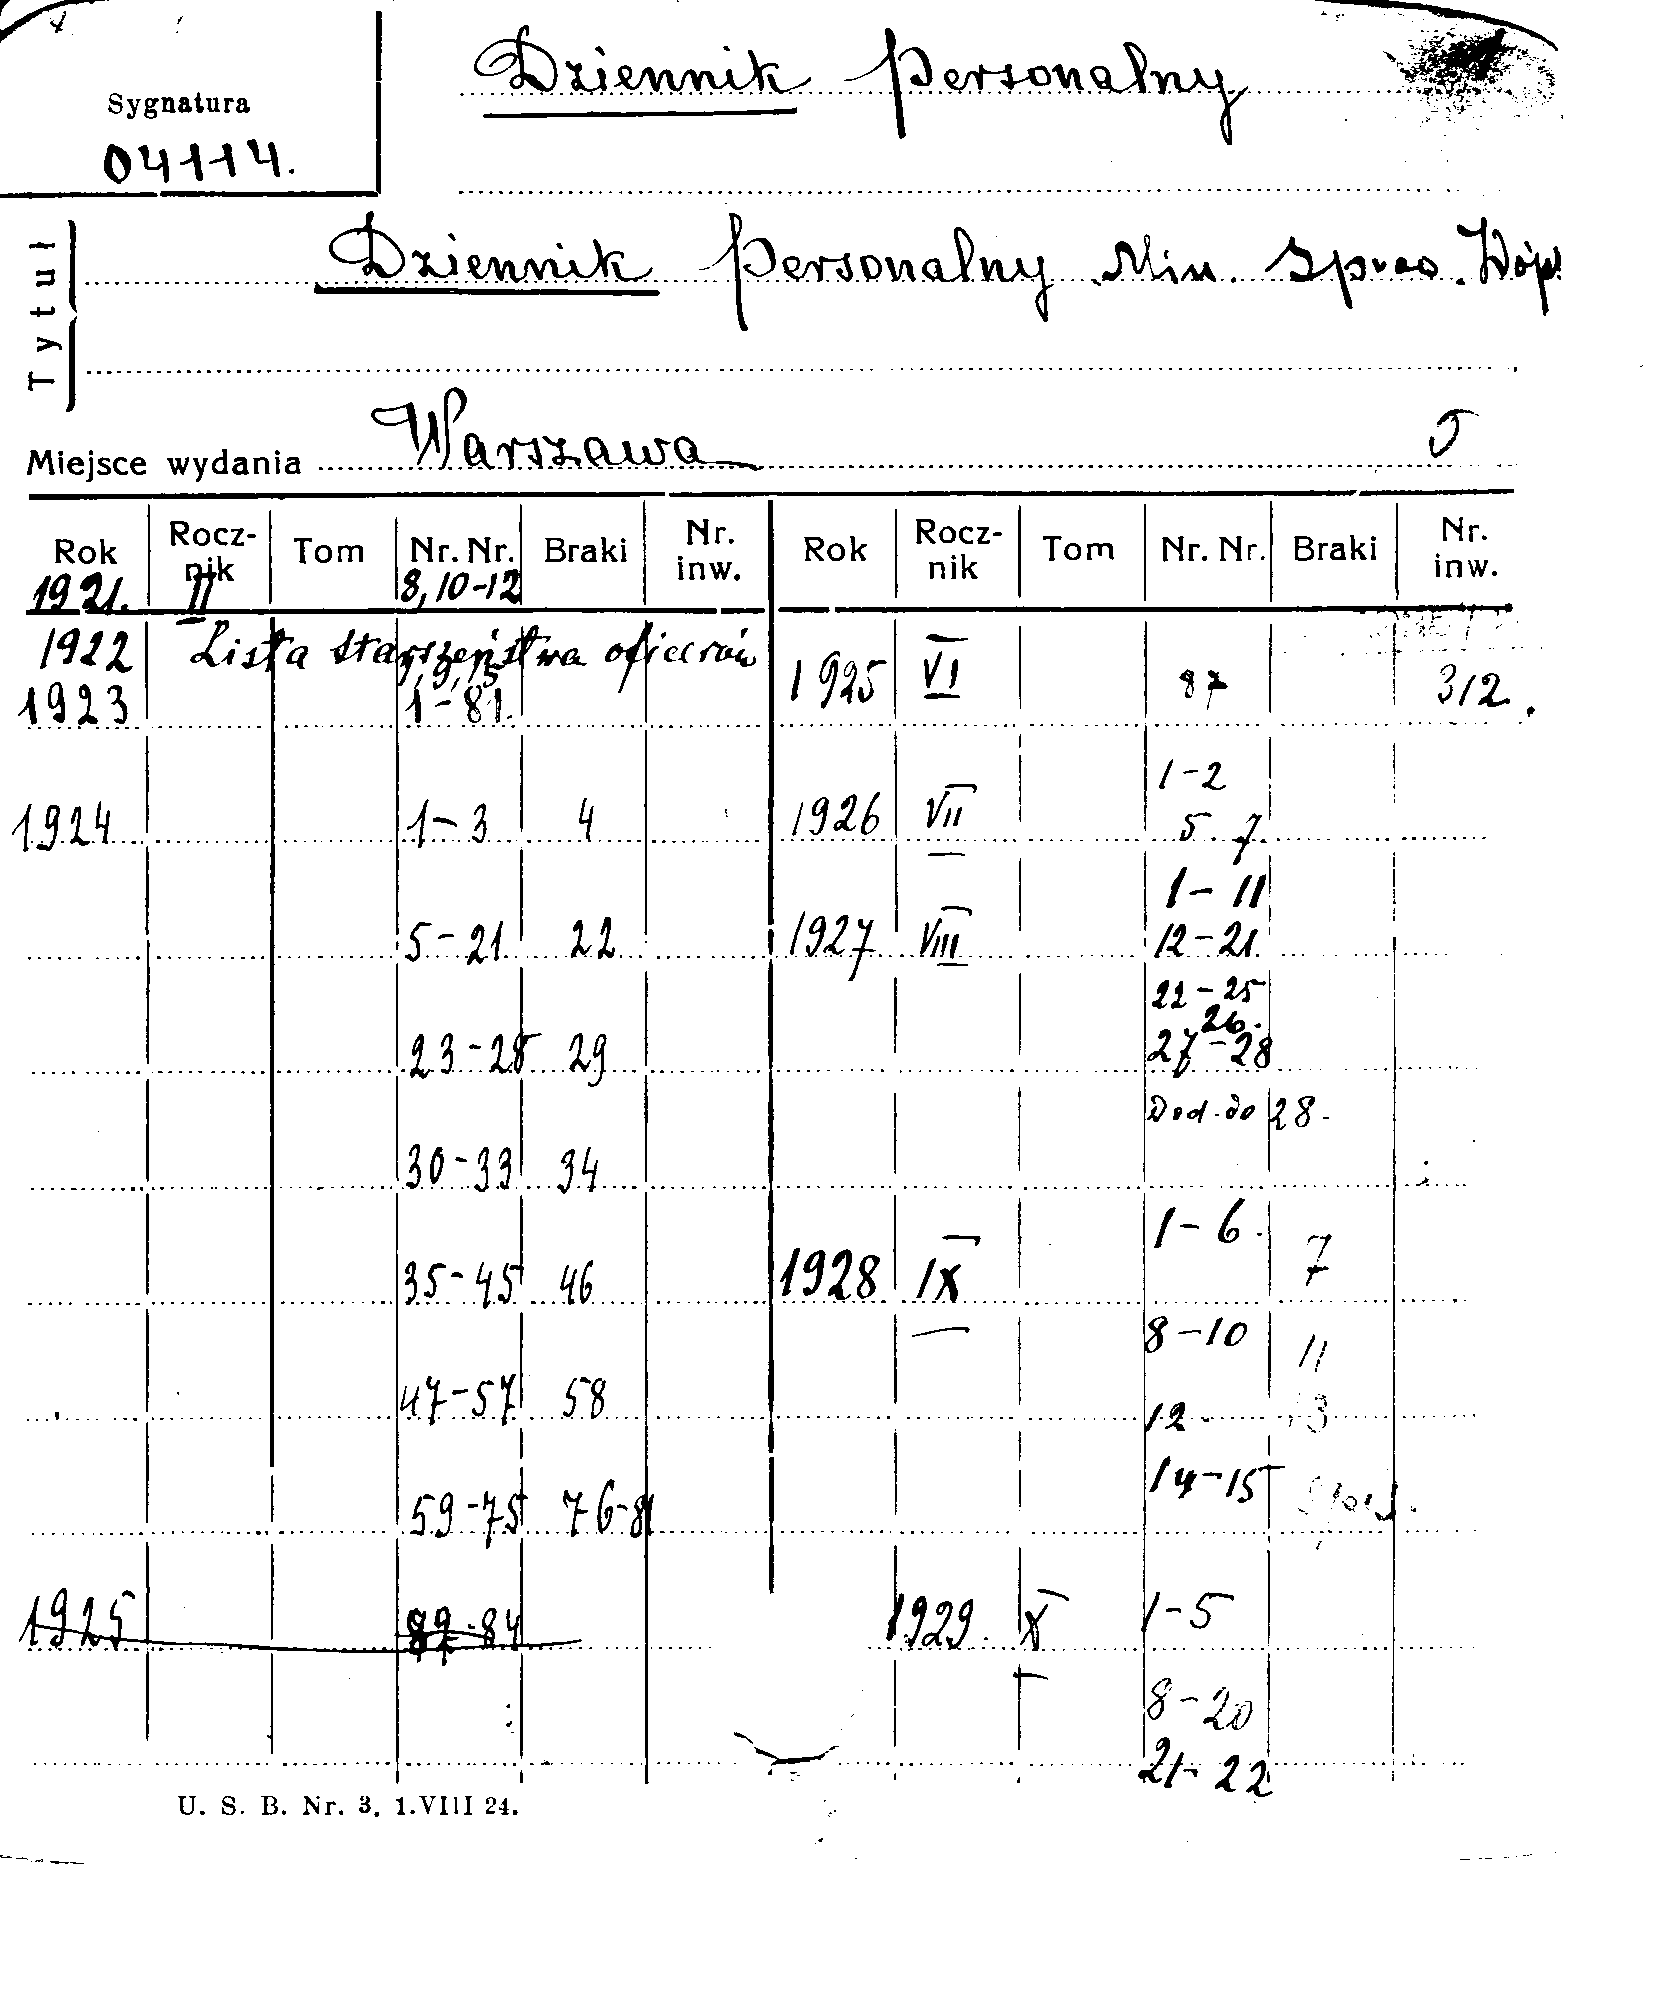 Dziennik Personalny
Sygnatura
04114.
Tytuł
Dziennik Personalny Min. Spraw. Wojs.
Miejsce wydania Warszawa
Rok Rocznik Tom Nr. Nr. Braki Nr. inw. Rok Rocznik Tom Nr. Nr. Braki Nr. inw.
1921. II 8, 10-12
1922 Lista starszeństwa oficerów
1923 1-81.
1925 VI 87 312.
1924 1-3 4
1926 VII 1-2
5. 7.
5-21 22
1927 VIII 1-11
12-21.
22-25
26.
23-28 29
27-28
Dod. do 28.
30-33 34
35-45 46
1928 IX 1-6. 7
8-10 11
47-57 58
12. 13
59-75 76-81
14-15
1925 84
1929. X 1-5
8-20
21-22
U. S. B. Nr. 3. 1.VIII 24.